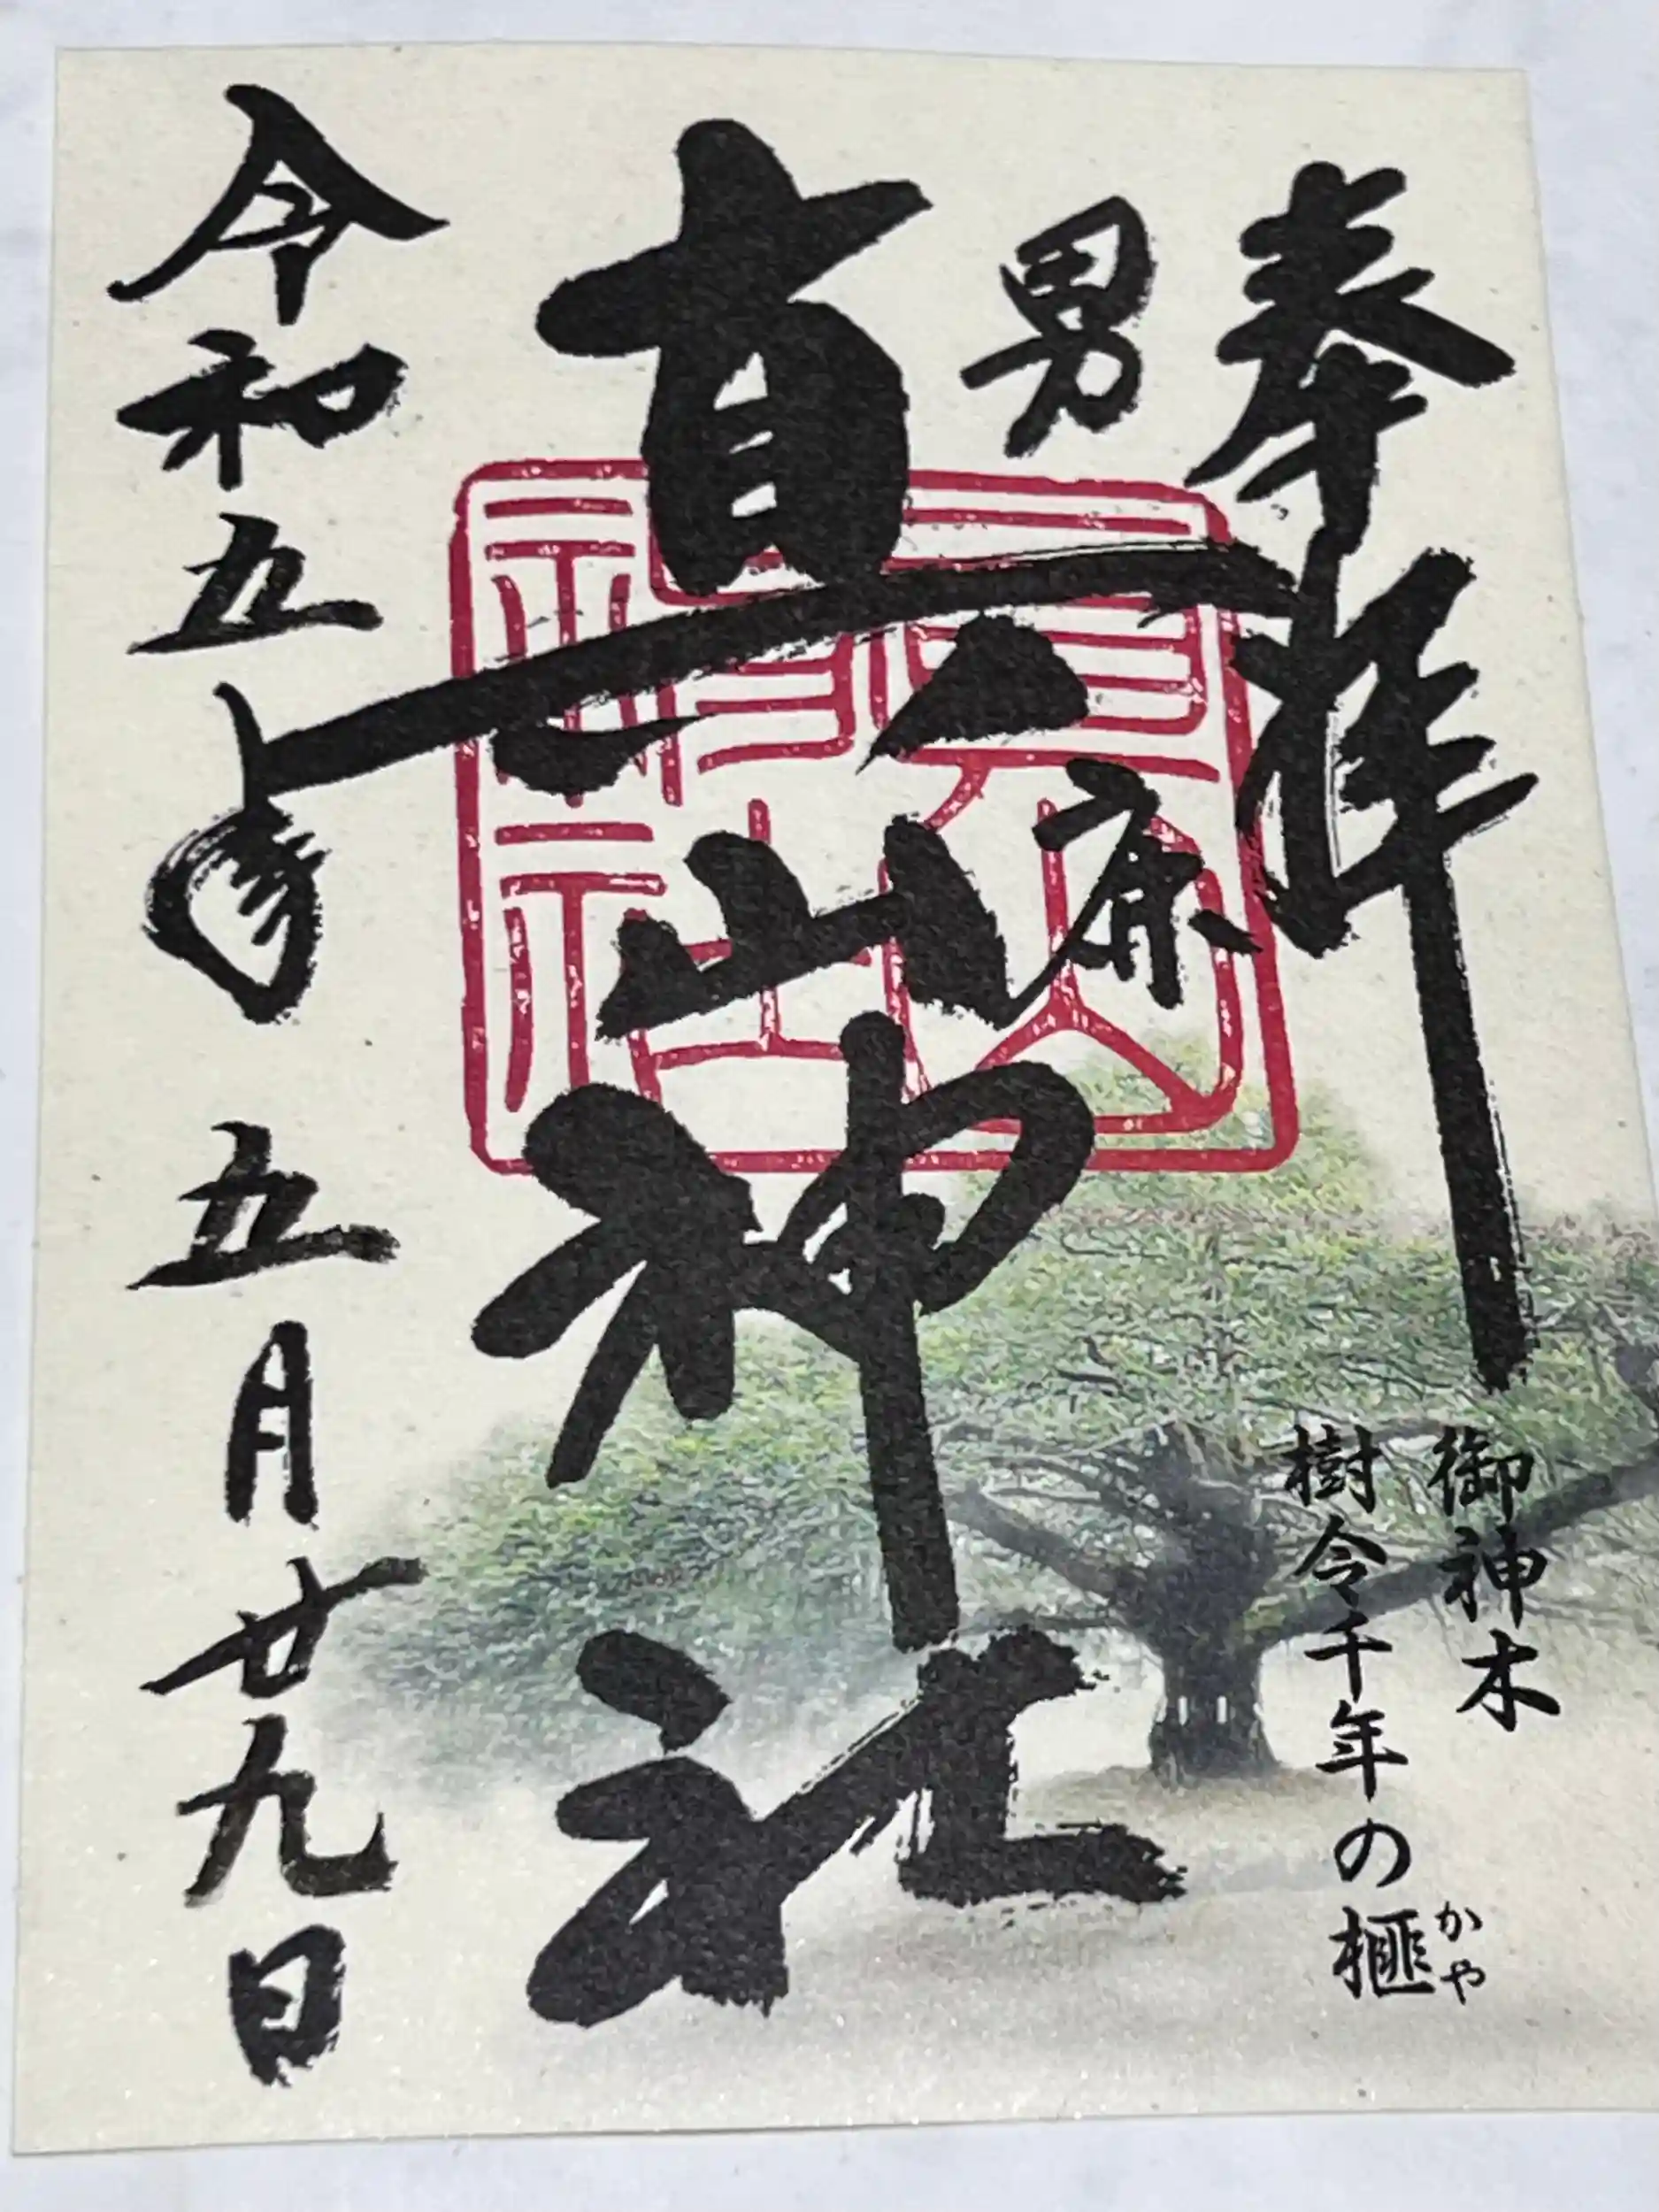 奉拝
御神木
樹令千年の榧
かや
男鹿
真山神社
令和五年 五月廿九日